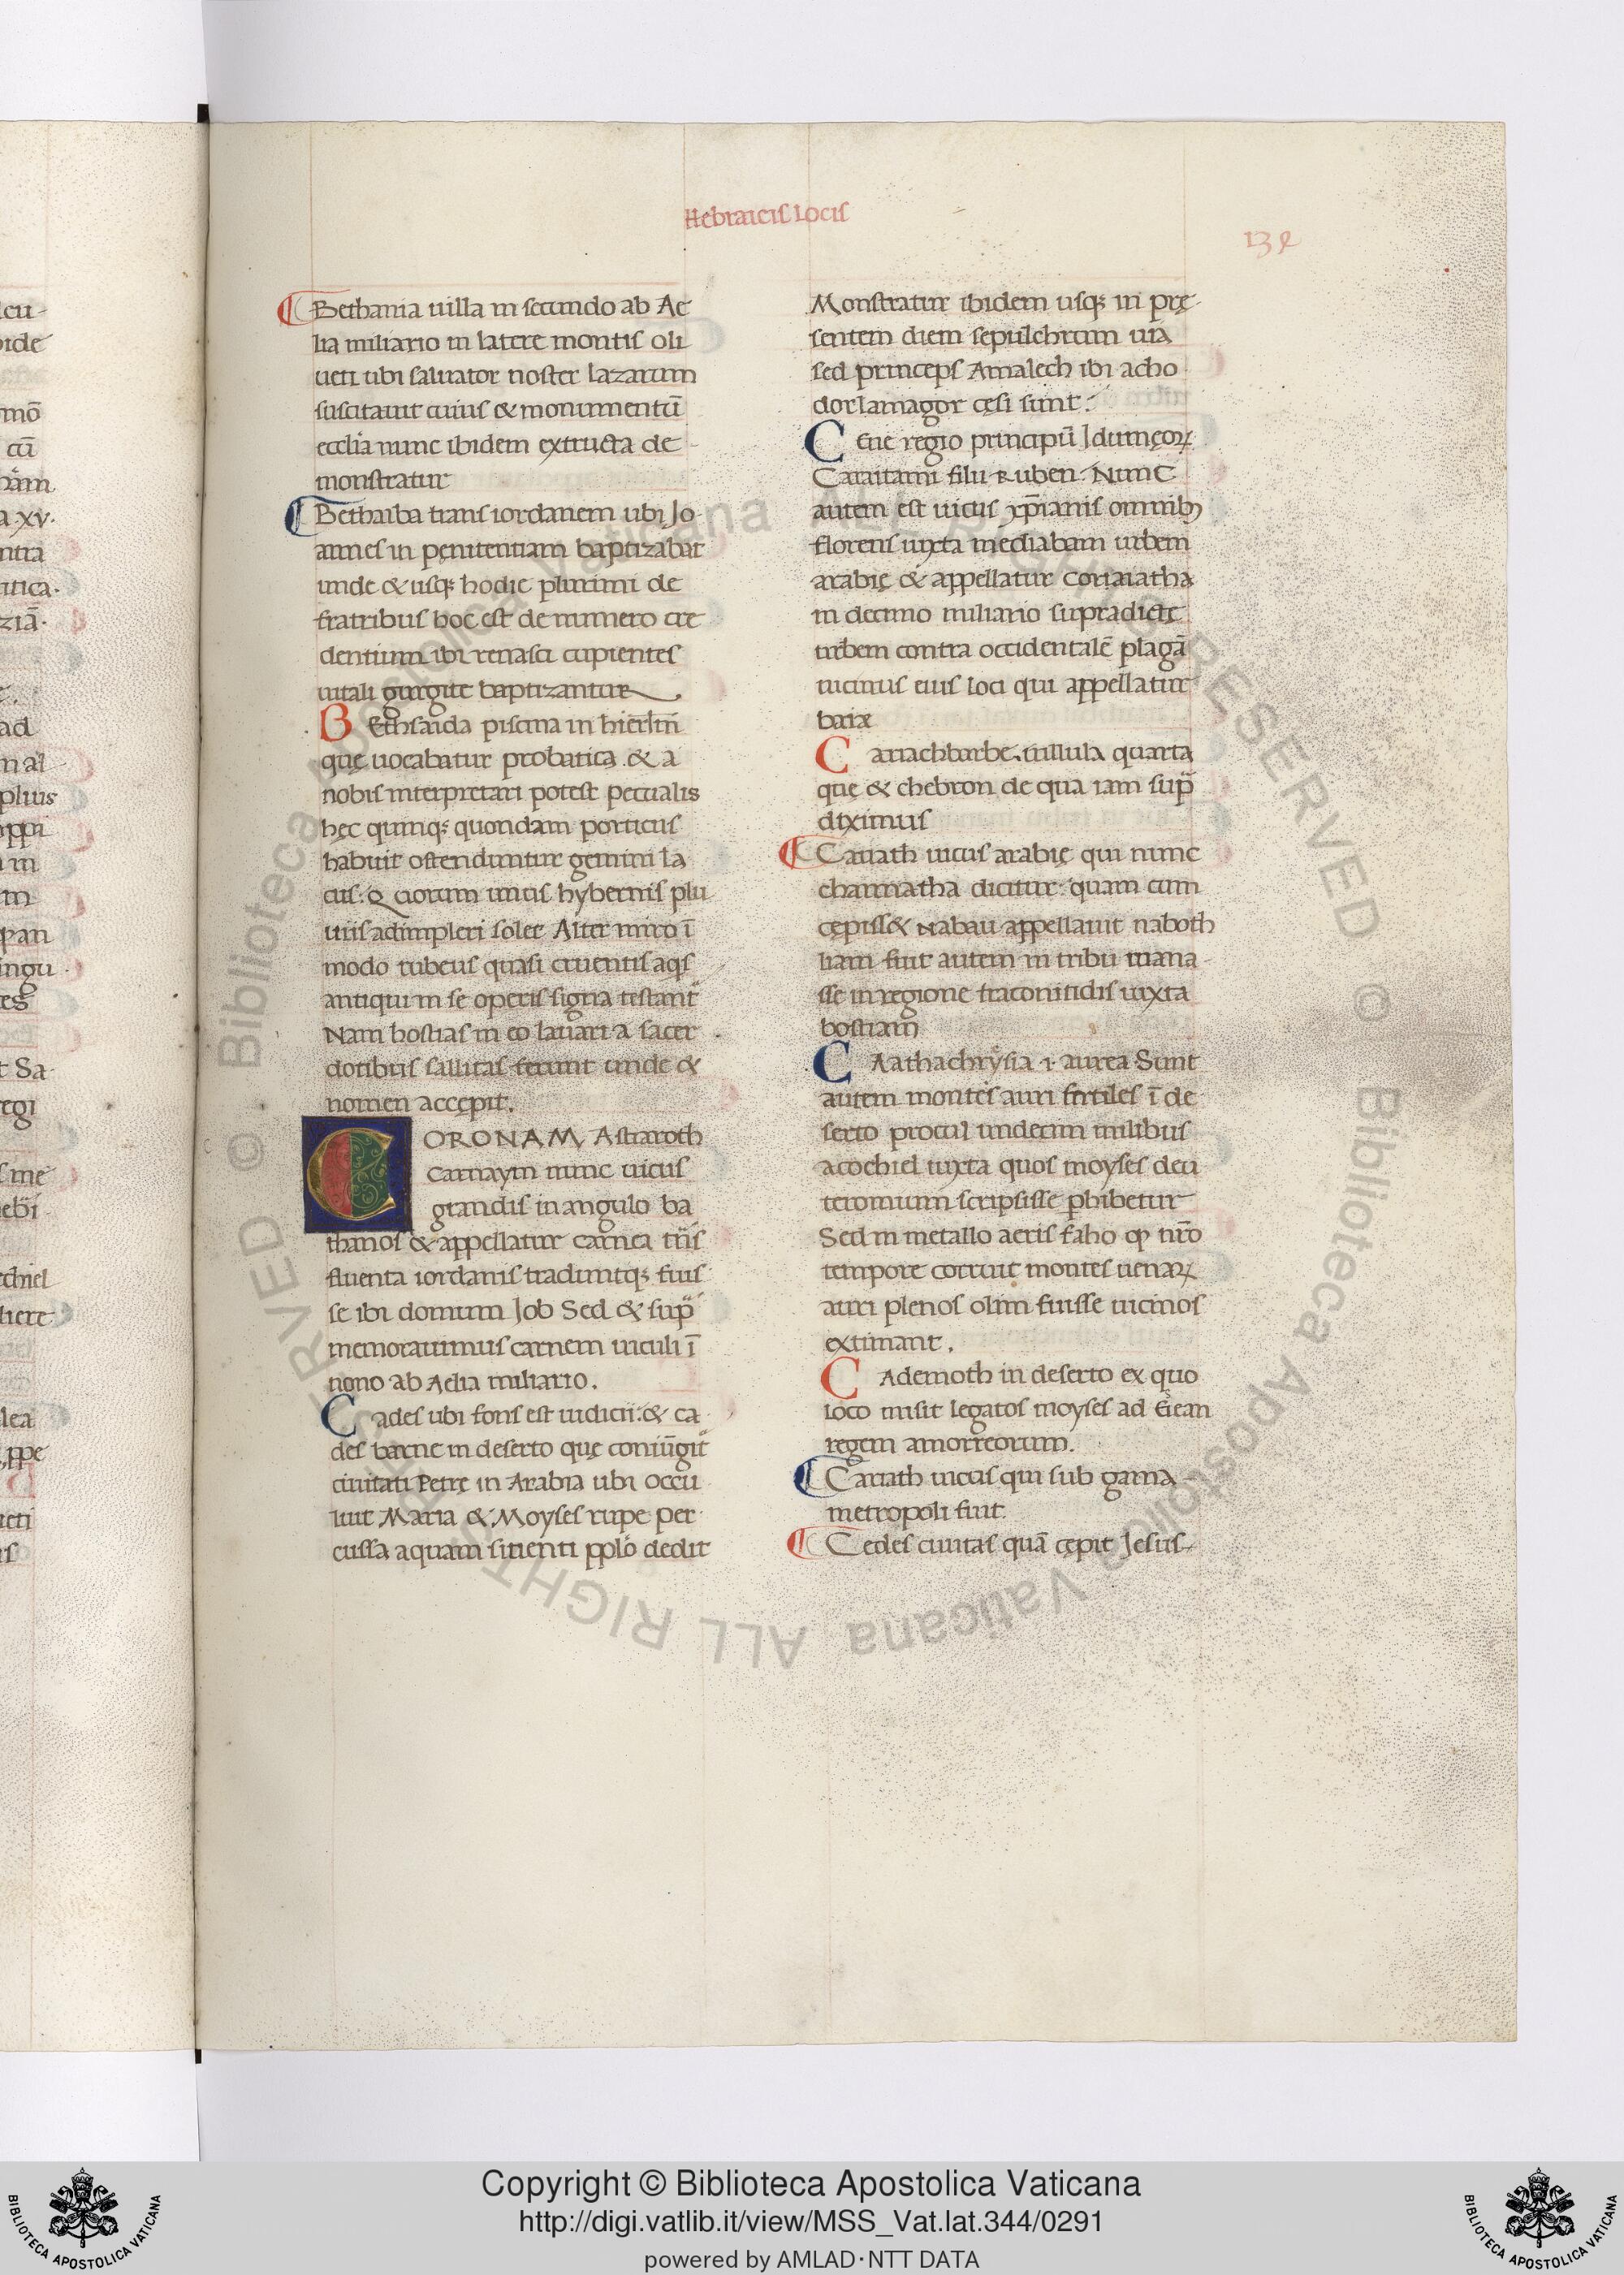 Hebraicis Locis
132
Bethania uilla in secundo ab Ae
lia miliario in latere montis oli
ueti ubi saluator noster lazarum
suscitauit cuius & monumentū
ecclia nunc ibidem extructa de
monstratur
Bethaiba trans iordanem ubi Jo
annes in pęnitentiam baptizabat
unde & usq; hodie plurimi de
fratribus hoc est de numero cre
dentium ibi renasci cupientes
uitali gurgite baptizantur
BEthsaida piscina in hierlm̄
quę uocabatur probatica & a
nobis interpretari potest pecualis
hęc quinq; quondam porticus
habuit ostenduntur gemini la
cus: Quorum unus hybernis plu
uiis adimpleri solet Alter miro ī
modo rubeus quasi cruentis aqs
antiqui in se operis signa testant
Nam hostias in eo lauari a sacer
dotibus sallitas ferunt unde &
nomen accępit.
CORONAM Astaroth
carnaym nunc uicus
grandis in angulo ba
thanos & appellatur carnea trīs
fluenta iordanis traduntq; fuis
se ibi domum Job Sed & sup
memorauimus carnem uiculi ī
nono ab Aelia miliario.
Cades ubi fons est iudicii: & ca
des barne in deserto quę coniūgit
ciuitati Petrę in Arabia ubi occu
uit Maria & Moyses rupe per
cussa aquam sitienti pplo dedit
Monstratur ibidem usq; in prę
sentem diem sepulchrum
sed princeps Amalech ibi acho
dorlamagor cęsi sunt:
CEne regio principū Idumęoꝝ
Caraitami filii Ruben. Nunc
autem est uicus xp̄ianis omnibȝ
florens iuxta mediabam urbem
arabię & appellatur coriaiatha
in decimo miliario supradictę
urbem contra occidentalē plagā
uicinus eius loci qui appellatur
baiæ
Cariachbarbe uillula quarta
quę & chebron de qua iam sup
diximus
Cariath uicus arabię qui nunc
channatha dicitur: quam cum
cępiss& Nabau appellauit naboth
liam fuit autem in tribu mana
sse in regione traconitidis iuxta
bostram
CAathachrysia .i. aurea Sunt
autem montes auri fertiles ī de
serto procul undecim milibus
acochiel iuxta quos moyses deu
teromium scripsisse phibetur
Sed in metallo aeris faho qp nr̄o
tempore corruit montes uenaꝝ
auri plenos olim fuisse uicinos
extimant.
CAdemoth in deserto ex quo
loco misit legatos moyses ad
regem amorreorum.
Cariath uicus qui sub gaina
metropoli fuit.
Cedes ciuitas quā cępit Jesus
Copyright © Biblioteca Apostolica Vaticana
http://digi.vatlib.it/view/MSS_Vat.lat.344/0291
powered by AMLAD·NTT DATA